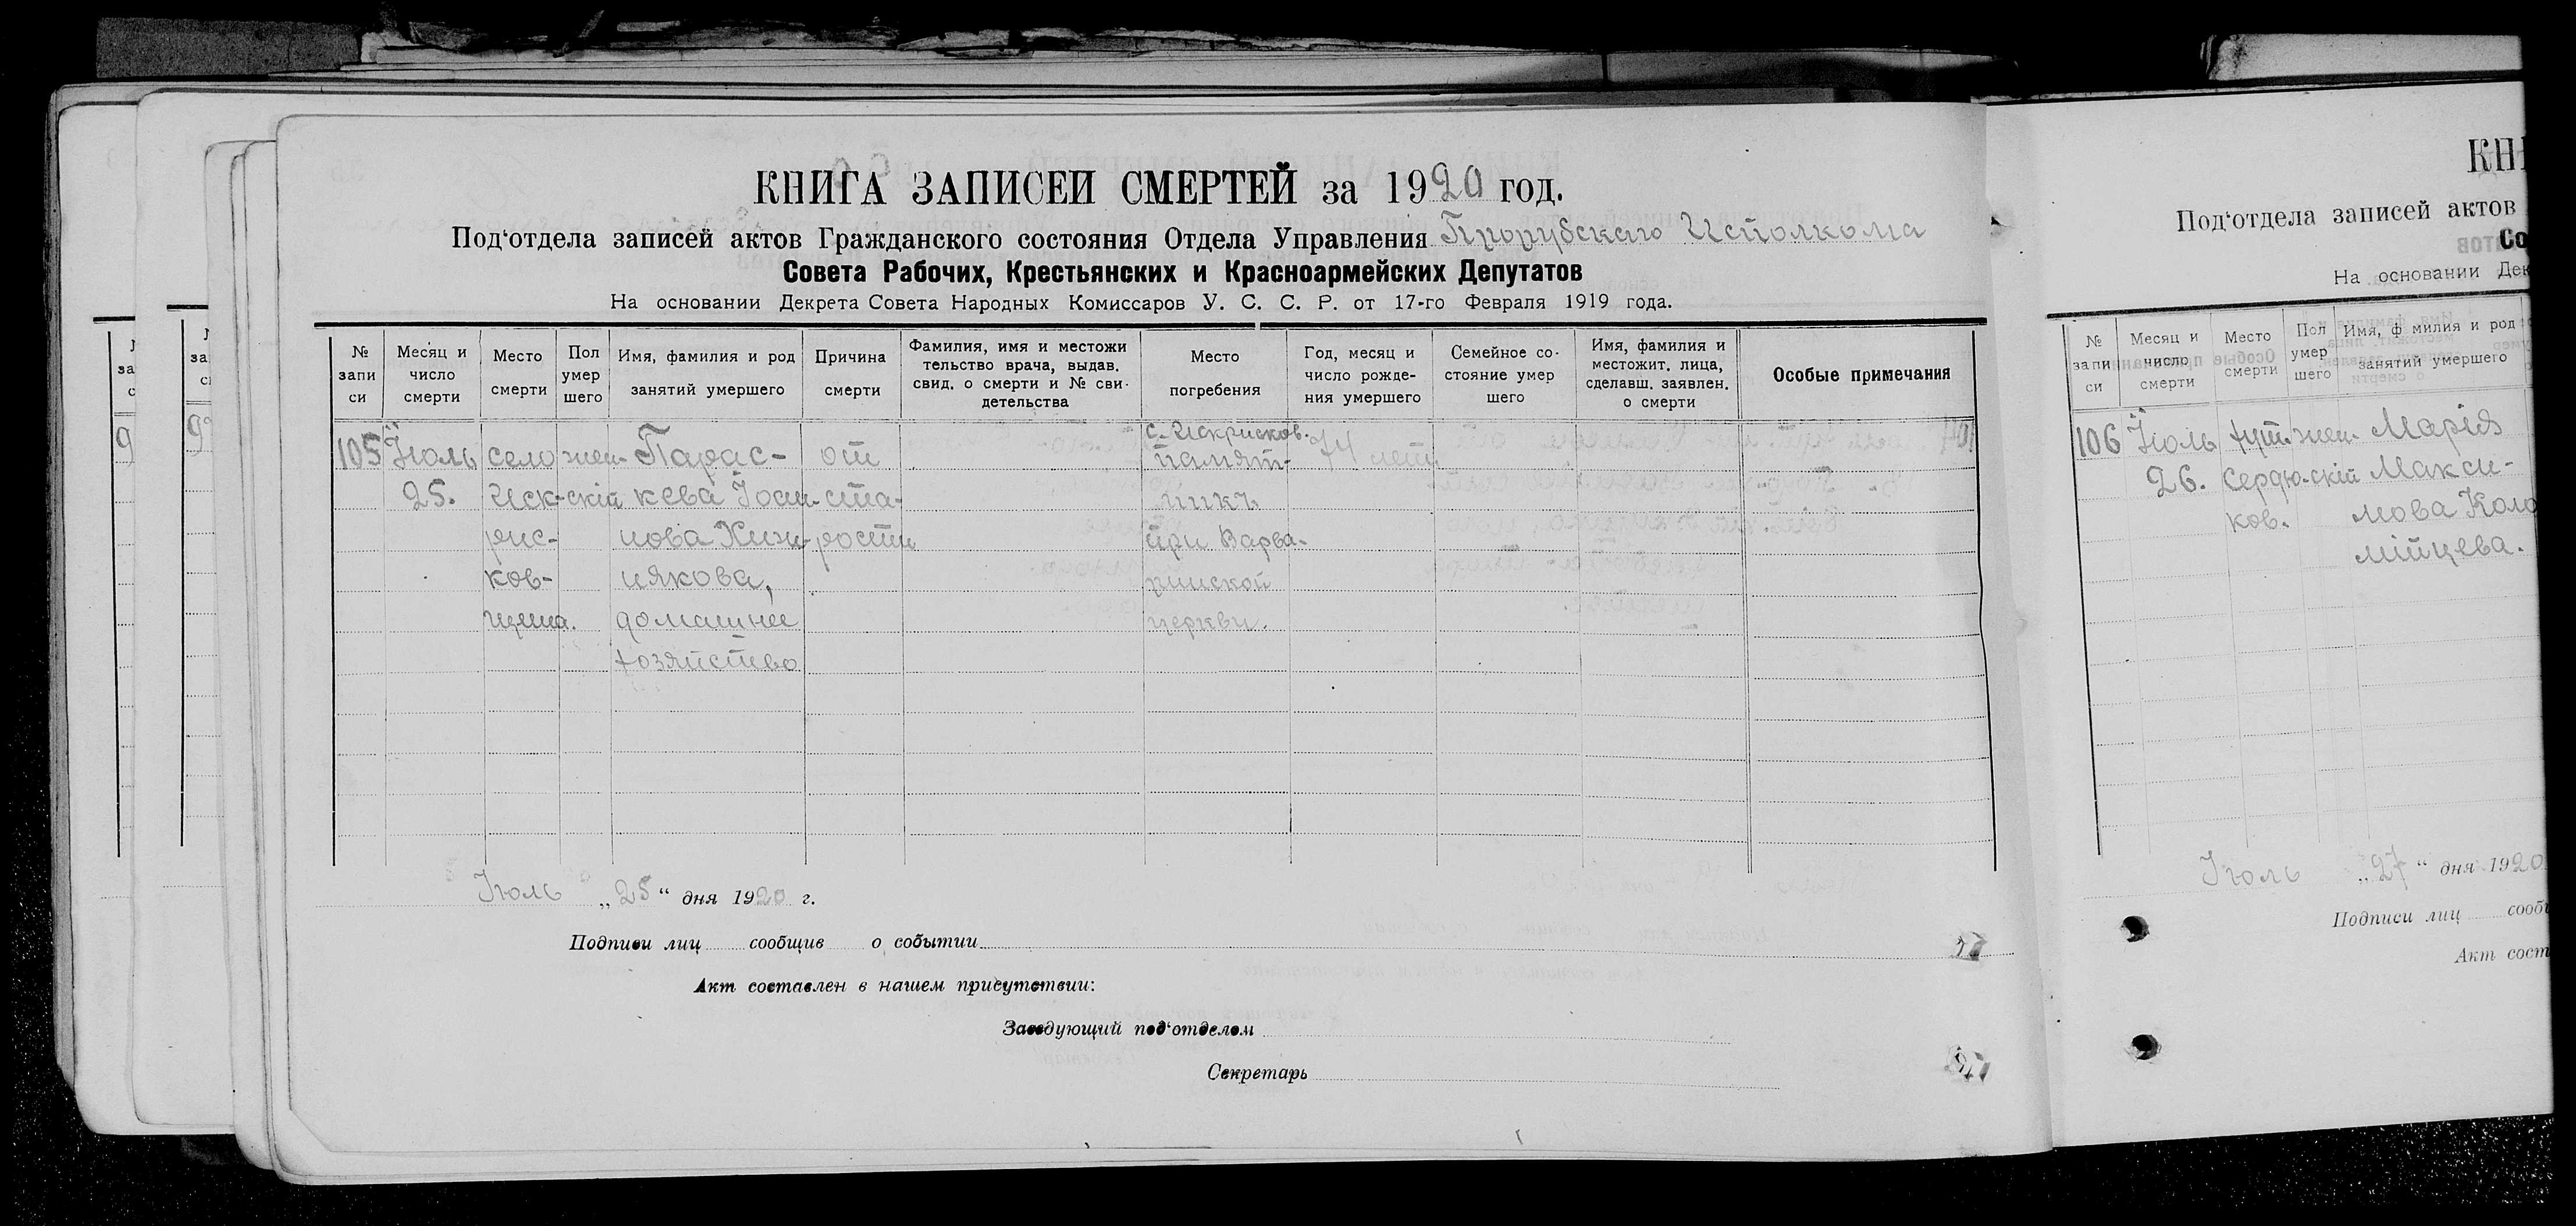 КНИГА ЗАПИСЕЙ СМЕРТЕЙ за 1920 год.
Под‘отдела записей актов Гражданского состояния Отдела Управления Прорубскаго Исполкома
Совета Рабочих, Крестьянских и Красноармейских Депутатов
На основании Декрета Совета Народных Комиссаров У. С. С. Р. от 17-го Февраля 1919 года.
№ запи си
Месяц и число смерти
Место смерти
Пол умер шего
Имя, фамилия и род занятий умершего
Причина смерти
Фамилия, имя и местожи тельство врача, выдав. свид. о смерти и № сви- детельства
Место погребения
Год, месяц и число рожде- ния умершего
Семейное со- стояние умер шего
Имя, фамилия и местожит. лица, сделавш. заявлен. о смерти
Особые примечания
105
Іюль
25.
село
Иск-
рис-
ков-
щина.
жен-
скій
Парас-
кева Іоан-
нова Хиж-
някова,
домашнее
хозяйство
от
ста-
рости
с. Искрисков.
памят-
никъ
при Варва-
ринской
церкви.
74 лет
Іюль „25“ дня 1920 г.
Подписи лиц сообщив о событии
Акт составлен в нашем присутствии:
Заведующий под‘отделом
Секретарь
КНИ
Под‘отдела записей актов
Со
На основании Дек
№ запи си
Месяц и число смерти
Место смерти
Пол умер шего
Имя, ф милия и род занятий умершего
106
Іюль
26.
хут.
Сердю-
ков.
жен-
скій
Марія
Макси-
мова Коло
мійцева.
Іюль „27“ дня 1920
Подписи лиц сооб
Акт сост